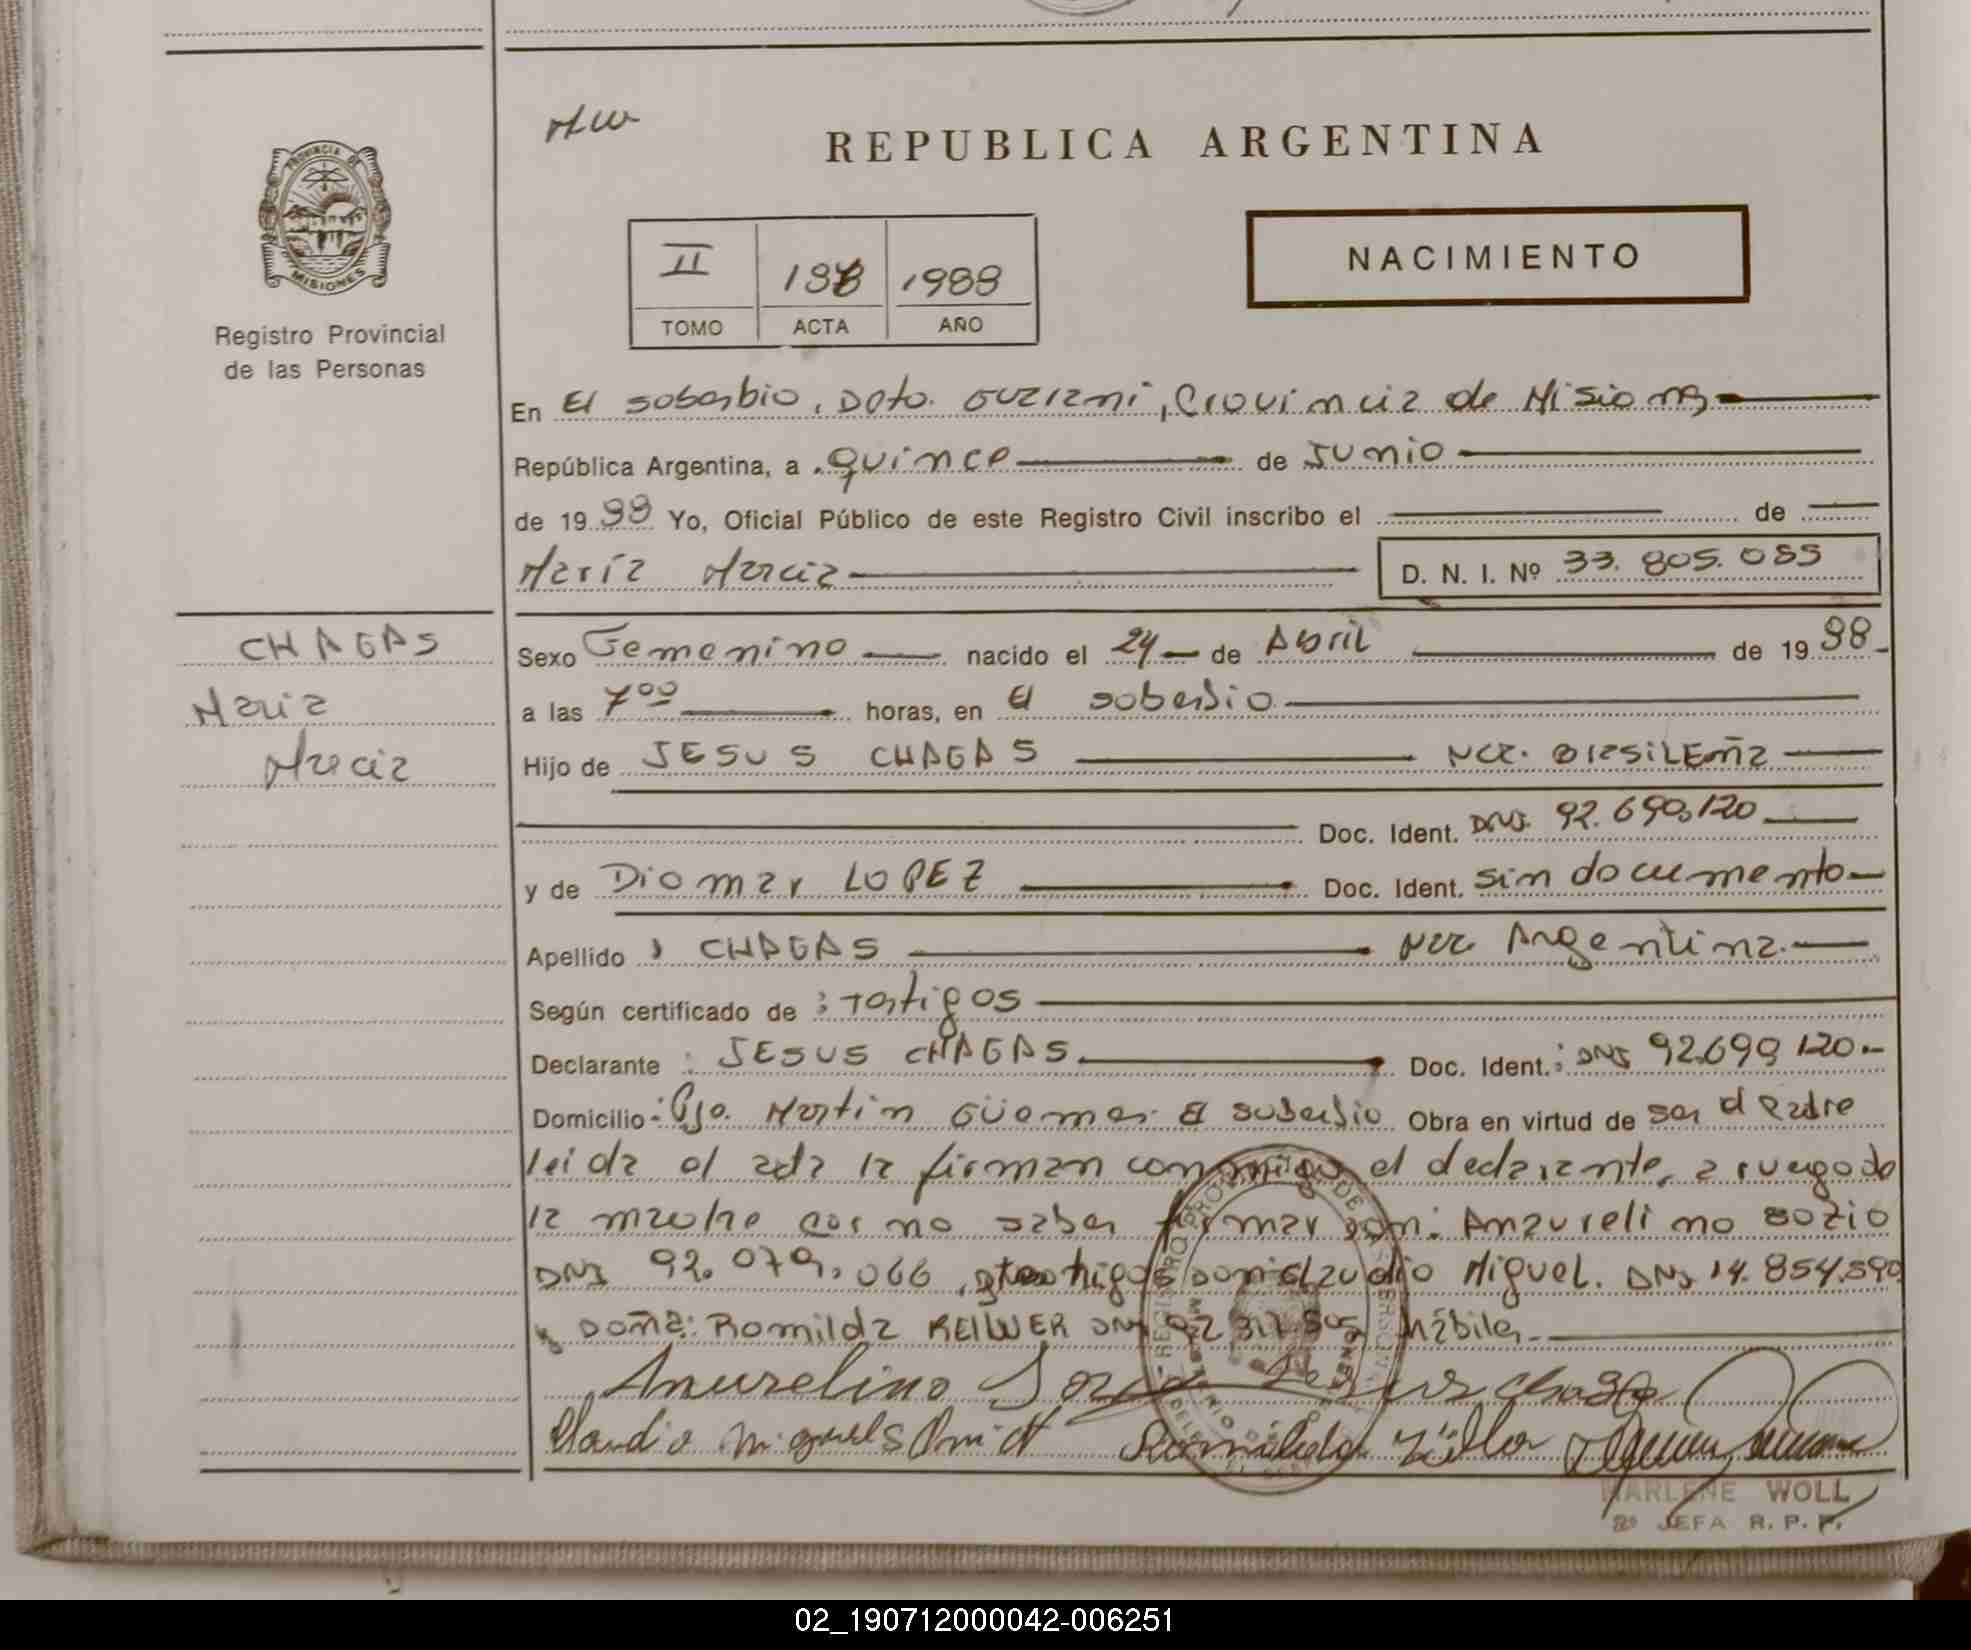 REPUBLICA ARGENTINA
PROVINCIA DE MISIONES
Registro Provincial
de las Personas
II 188 1988
TOMO ACTA AÑO
NACIMIENTO
En El soberbio, Dpto. Guarani, Provincia de Misiones
República Argentina, a quince de Junio
de 1988 Yo, Oficial Público de este Registro Civil inscribo el de
María Marcia D. N. I. Nº 33.805.085
CHAGAS
Maria
Marcia
Sexo Femenino nacido el 24 de Abril de 1988
a las 7 00 horas, en El soberbio
Hijo de JESUS CHAGAS Nac. Brasileña
Doc. Ident. DNI. 92.690.120
y de Diomar LOPEZ Doc. Ident. sin documento
Apellido : CHAGAS Nac. Argentina.
Según certificado de : Testigos
Declarante : JESUS CHAGAS. Doc. Ident.: DNI 92.690.120.-
Domicilio: Pje. Martin Güemes. El soberbio Obra en virtud de ser el Padre
leida el acta la firman conmigo el declarante, a ruego de
la madre por no saber firmar don: Anaurelino sozio
DNI 92.079.066, testigos don: Claudio Miguel. DNI 14.854.590
y DOÑA: Romilda DNI 92 317.505 hábiles.
Anurelino Jesus Chagas
Claudio Miguel Romilda
MARLENE WOLL
JEFA R. P. P.
02_190712000042-006251